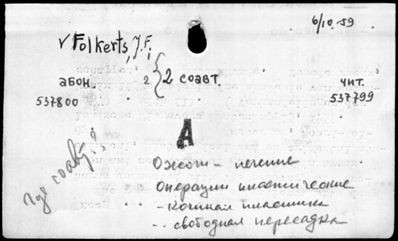 6/10.59.
v Folkerts, J. F.,
2 { 2 соавт.
абон. чит.
537800 537799
А
Где соавт?!
Ожоги - лечение
Операции пластические
- Кожная пластика
- - свободная пересадка